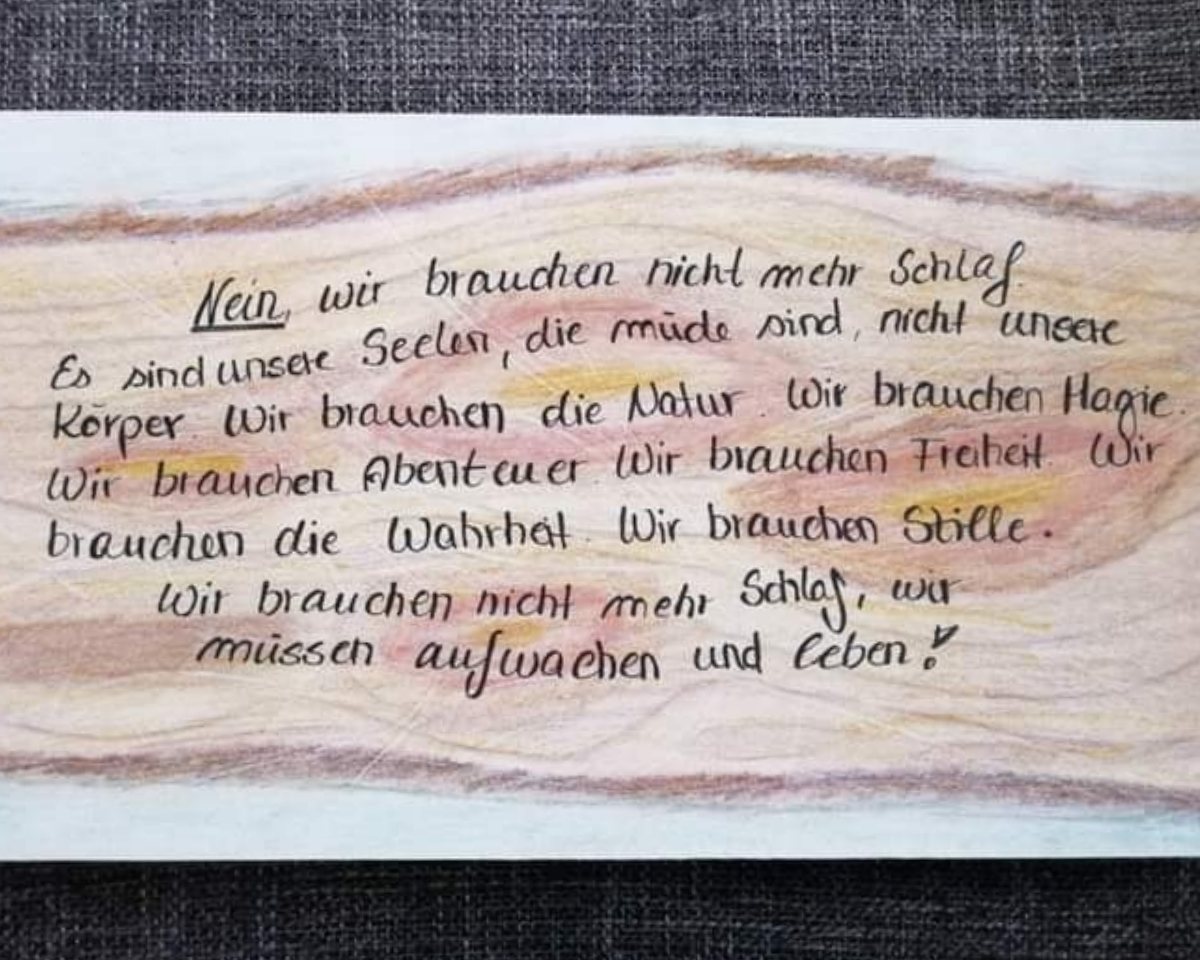 Nein, wir brauchen nicht mehr Schlaf.
Es sind unsere Seelen, die müde sind, nicht unsere
Körper. Wir brauchen die Natur. Wir brauchen Magie.
Wir brauchen Abenteuer. Wir brauchen Freiheit. Wir
brauchen die Wahrheit. Wir brauchen Stille.
Wir brauchen nicht mehr Schlaf, wir
müssen aufwachen und leben!